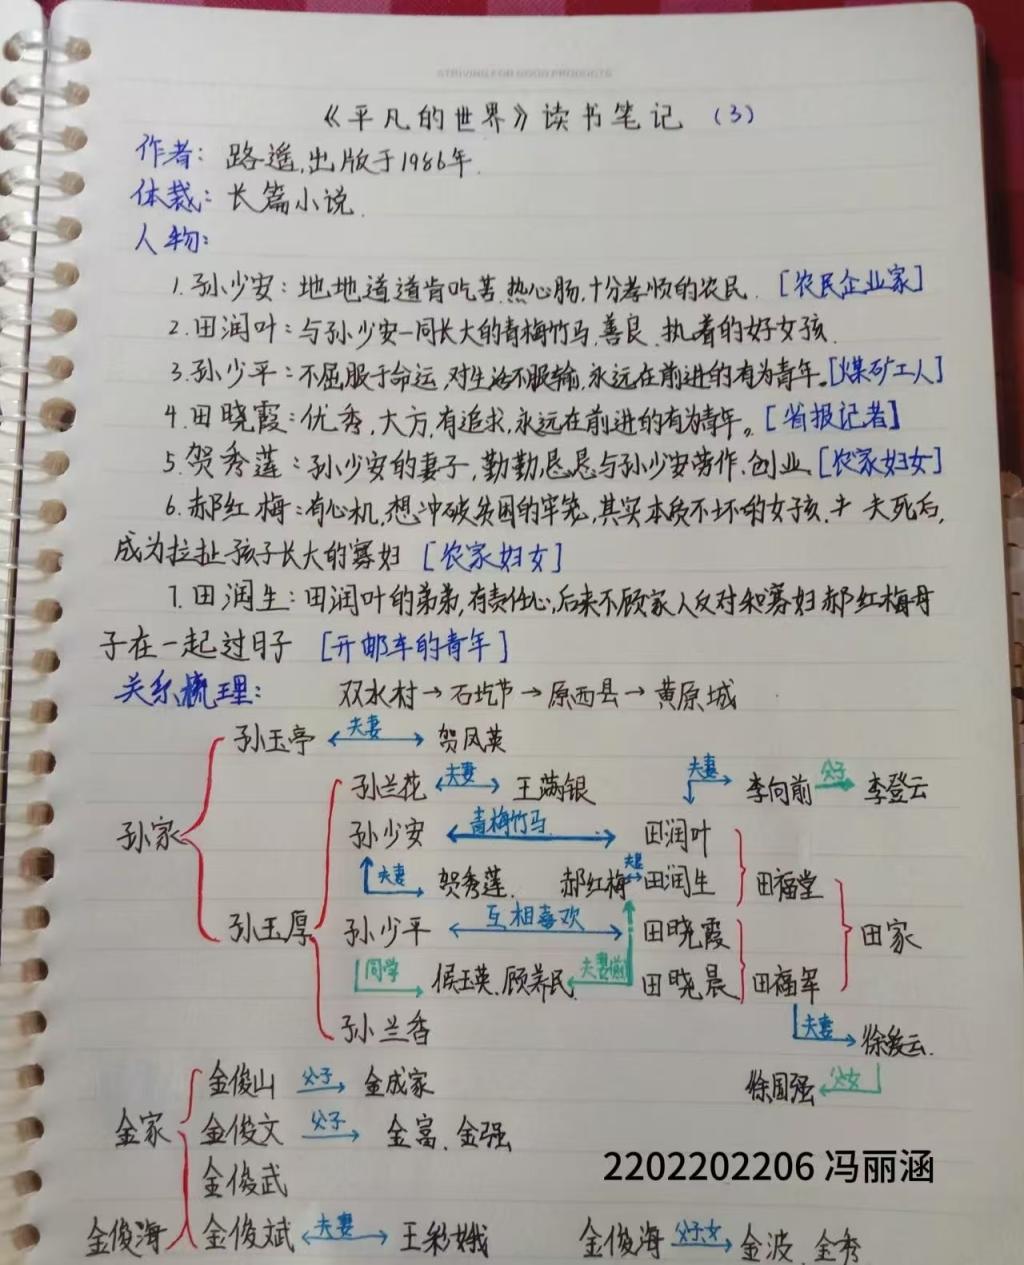 STRIVING FOR GOOD PRODUCTS
《平凡的世界》读书笔记 (3)
作者: 路遥,出版于1986年.
体裁: 长篇小说.
人物:
1.孙少安: 地地道道肯吃苦.热心肠,十分孝顺的农民. [农民企业家]
2.田润叶: 与孙少安一同长大的青梅竹马,善良.执着的好女孩.
3.孙少平: 不屈服于命运,对生活不服输,永远在前进的有为青年。[煤矿工人]
4.田晓霞: 优秀,大方,有追求,永远在前进的有为青年。[省报记者]
5.贺秀莲: 孙少安的妻子,勤勤恳恳与孙少安劳作.创业.[农家妇女]
6.郝红梅: 有心机,想冲破贫困的牢笼,其实本质不坏的女孩. 夫死后,
成为拉扯孩子长大的寡妇 [农家妇女]
7.田润生: 田润叶的弟弟,有责任心,后来不顾家人反对和寡妇郝红梅母
子在一起过日子 [开邮车的青年]
关系梳理: 双水村→石圪节→原西县→黄原城
孙玉亭 夫妻 贺凤英
孙兰花 夫妻 王满银 夫妻 李向前 父子 李登云
孙家 孙少安 青梅竹马 田润叶
夫妻 贺秀莲. 郝红梅 夫妻 田润生 田福堂
孙玉厚 孙少平 互相喜欢 田晓霞 田家
同学 侯玉英.顾养民 夫妻 田晓晨 田福军
孙兰香 夫妻 徐爱云.
金俊山 父子 金成家 徐国强 父女
金家 金俊文 父子 金富.金强
金俊武
2202202206 冯丽涵
金俊海 金俊斌 夫妻 王彩娥 金俊海 父子女 金波 金秀